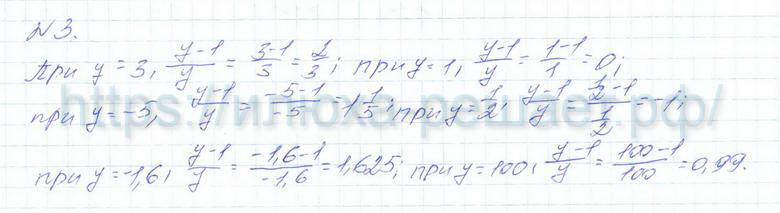 № 3.
При y = 3, \frac{y-1}{y} = \frac{3-1}{3} = \frac{2}{3}; при y = 1, \frac{y-1}{y} = \frac{1-1}{1} = 0;
при y = -5, \frac{y-1}{y} = \frac{-5-1}{-5} = 1\frac{1}{5}; при y = \frac{1}{2}, \frac{y-1}{y} = \frac{\frac{1}{2}-1}{\frac{1}{2}} = -1;
https://илюха-решает.рф/
при y = -1,6, \frac{y-1}{y} = \frac{-1,6-1}{-1,6} = 1,625; при y = 100, \frac{y-1}{y} = \frac{100-1}{100} = 0,99.